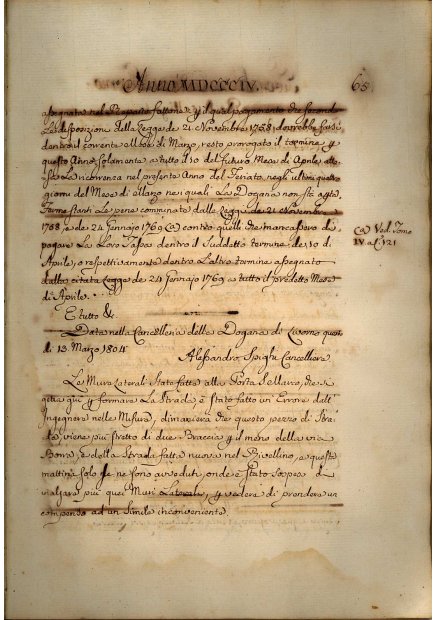 Anno MDCCCIV.
65
assegnata nel Reparto fattone, e il qual pagamento che secondo
La disposizione della Legge de 21. Novembre 1758. dovrebbe farsi
dentro il corrente Mese di Marzo, resto prorogato il termine p
questo Anno Solamente a tutto il 10 del futuro Mese di Aprile, atte-
sa La ricorrenza nel presente Anno del Feriato negli ultimi quattro
giorni del Mese di Marzo nei quali La Dogana non stà agta.
Ferme stanti Le pene comminate dalle Leggi de 21 Novembre
1758 e de 24 Gennajo 1769 (a) contro quelli che mancassero di
pagare La Loro Tassa dentro il Suddetto termine de 10 di
Aprile, o respettivamente dentro L'altro termine assegnato
dalla citata Legge de 24 Gennajo 1769 a tutto il predetto Mese
di Aprile.
(a) Ved. Tomo
IV. a s. 121
E tutto &c.
Data nella Cancelleria della Dogana di Livorno questo
dì 13. Marzo 1804.
Alessandro Cancelliere
Le Mura Laterali State fatte alla Porta che si
getta giù p formare La Strada, è stato fatto un Errore dell'
Ingegnere nelle Misure, dimaniera che questo pezzo di Stra-
da, viene più stretto di due Braccia p il meno della via
Borra, e della Strada fatta nuova nel Rivellino, e questa
mattina solo se ne sono avveduti, onde è stato sospeso di
rialzare più quei Muri Laterali, p vedere di prendere un
compenso ad un Simile inconveniente.